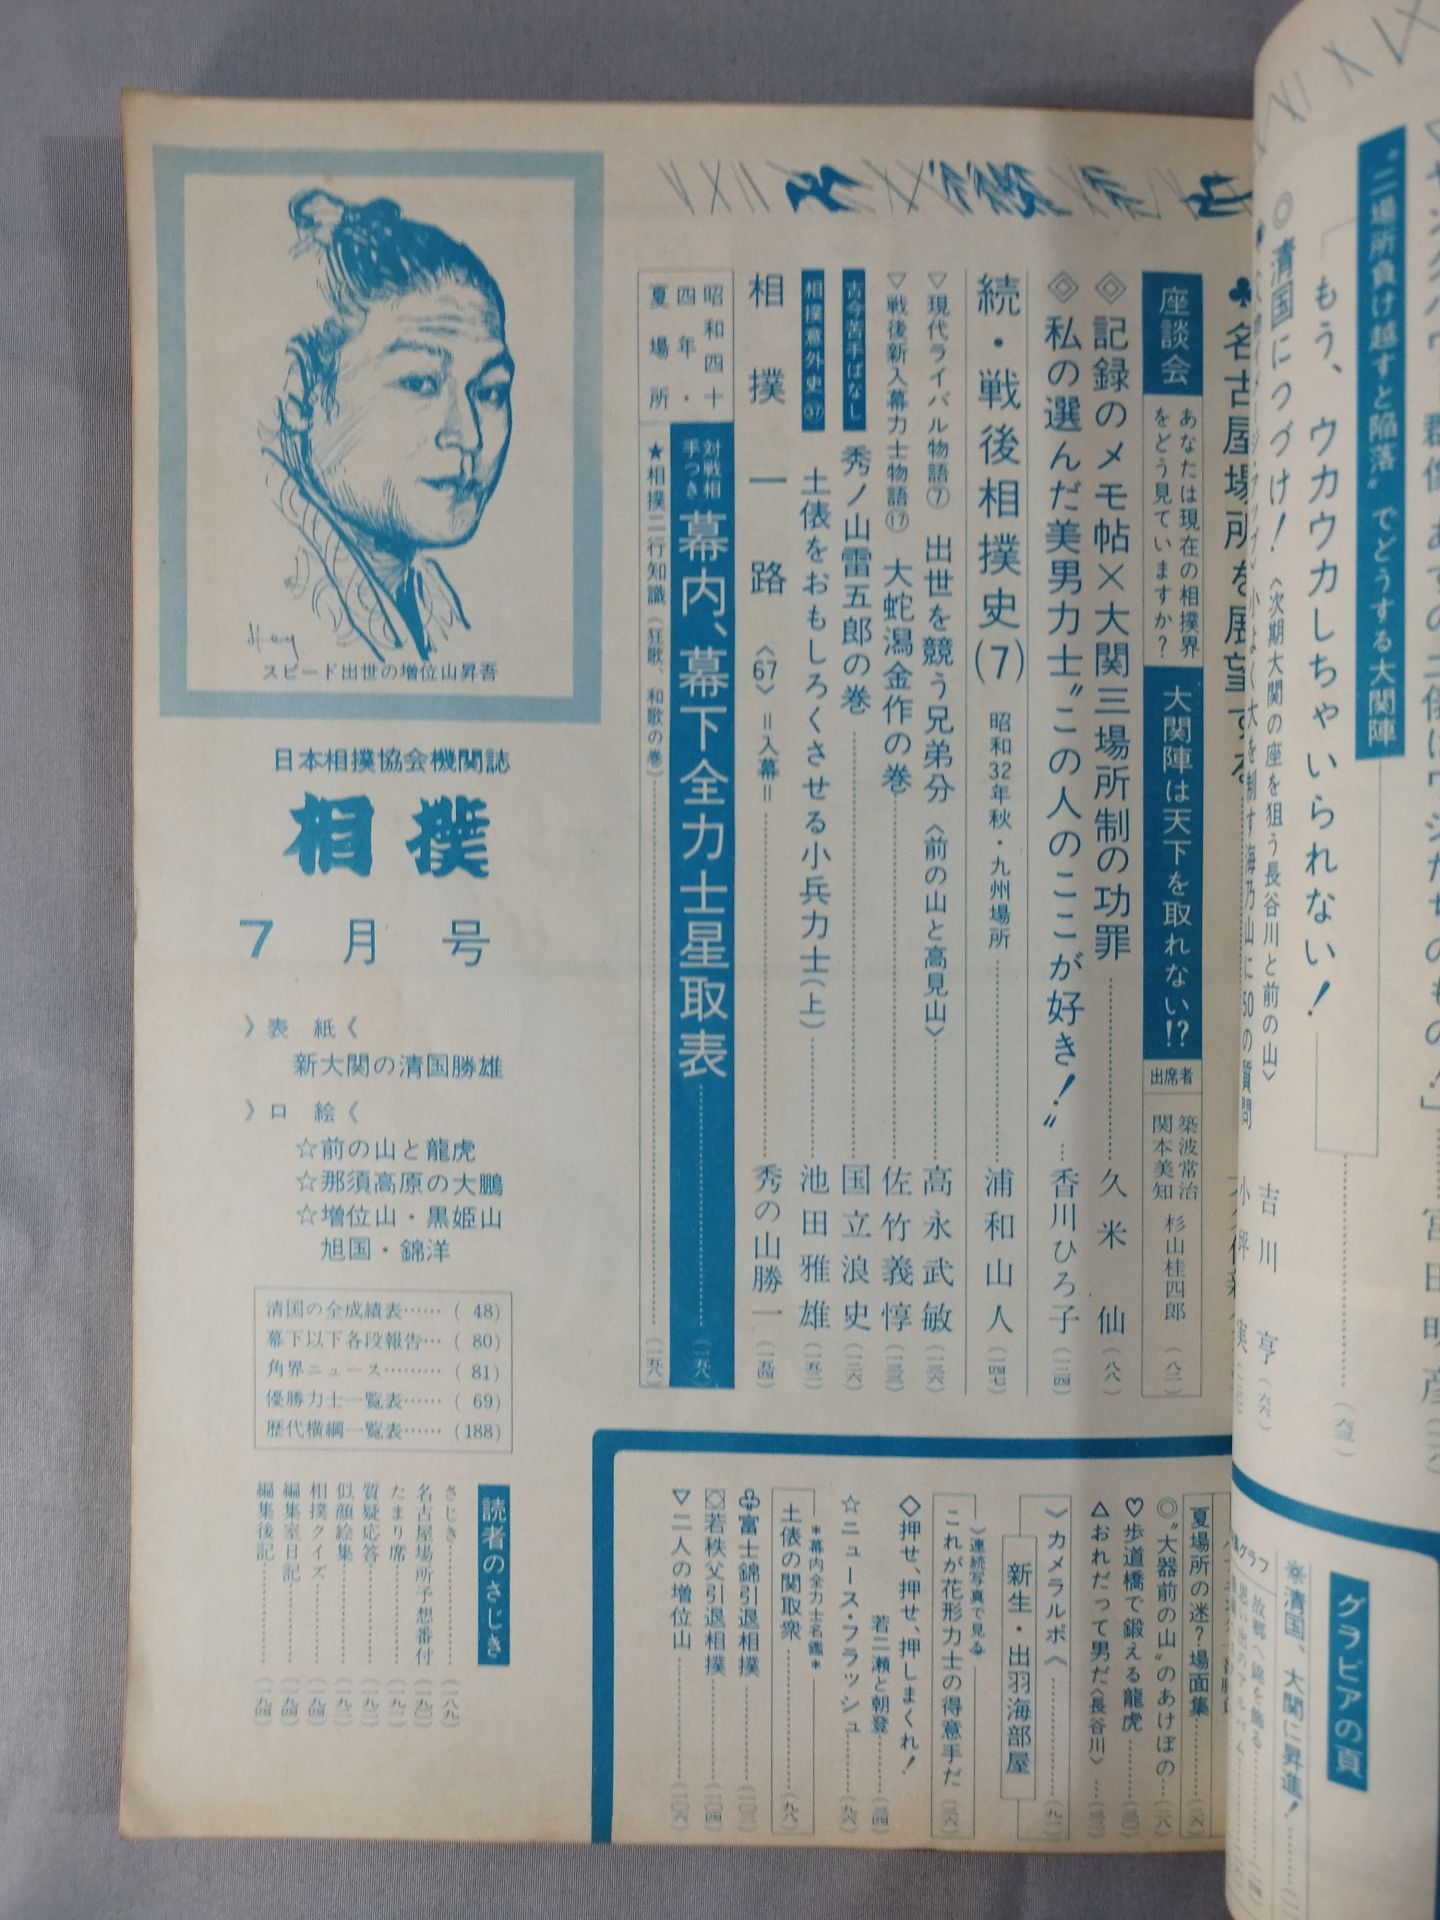 "二場所負け越すと陥落"でどうする大関陣
もう、ウカウカしちゃいられない!
◎清国につづけ!〈次期大関の座を狙う長谷川と前の山〉
吉川 亨
♣名古屋場所を展望する
座談会
あなたは現在の相撲界をどう見ていますか?
大関陣は天下を取れない!?
出席者
築波常治
関本美知
杉山桂四郎
(八二)
◇記録のメモ帖×大関三場所制の功罪………久米 仙(八八)
◇私の選んだ美男力士"この人のここが好き!"…香川ひろ子(一二四)
続・戦後相撲史(7) 昭和32年秋・九州場所………浦和山人(一四七)
▽現代ライバル物語⑦ 出世を競う兄弟分〈前の山と高見山〉………高永武敏(一三六)
▽戦後新入幕力士物語⑰ 大蛇潟金作の巻………佐竹義惇(一三三)
古今苦手ばなし 秀ノ山雷五郎の巻………国立浪史(一二六)
相撲意外史(37) 土俵をおもしろくさせる小兵力士(上)………池田雅雄(一五二)
相撲一路〈67〉=入幕=………秀の山勝一(一五四)
昭和四十四年・夏場所
対戦相手つき 幕内、幕下全力士星取表………(一五八)
★相撲二行知識(狂歌、和歌の巻)………(一五八)
Hey
スピード出世の増位山昇吾
日本相撲協会機関誌
相撲
7月号
》表 紙《
新大関の清国勝雄
》口 絵《
☆前の山と龍虎
☆那須高原の大鵬
☆増位山・黒姫山
旭国・錦洋
清国の全成績表……(48)
幕下以下各段報告…(80)
角界ニュース………(81)
優勝力士一覧表……(69)
歴代横綱一覧表……(188)
読者のさじき
さじき………(一八九)
名古屋場所予想番付………(一九〇)
たまり席………(一九一)
質疑応答………(一九二)
似顔絵集………(一九三)
相撲クイズ………(一九四)
編集室日記………(一九四)
編集後記………(一九四)
グラビアの頁
※清国、大関に昇進!
故郷へ錦を飾る
思い出のアルバム
夏場所の迷?場面集
◎"大器前の山"のあけぼの…(二八)
♡歩道橋で鍛える龍虎………(三〇)
△おれだって男だ〈長谷川〉…(三二)
》カメラルポ《………(九一)
新生・出羽海部屋
》連続写真で見る《
これが花形力士の得意手だ(三六)
◇押せ、押せ、押しまくれ!
若二瀬と朝登………(三四)
☆ニュース・フラッシュ………(九六)
*幕内全力士名鑑*
土俵の関取衆………(九八)
♧富士錦引退相撲………(一〇三)
◇若秩父引退相撲………(一〇四)
▽二人の増位山………(一〇六)